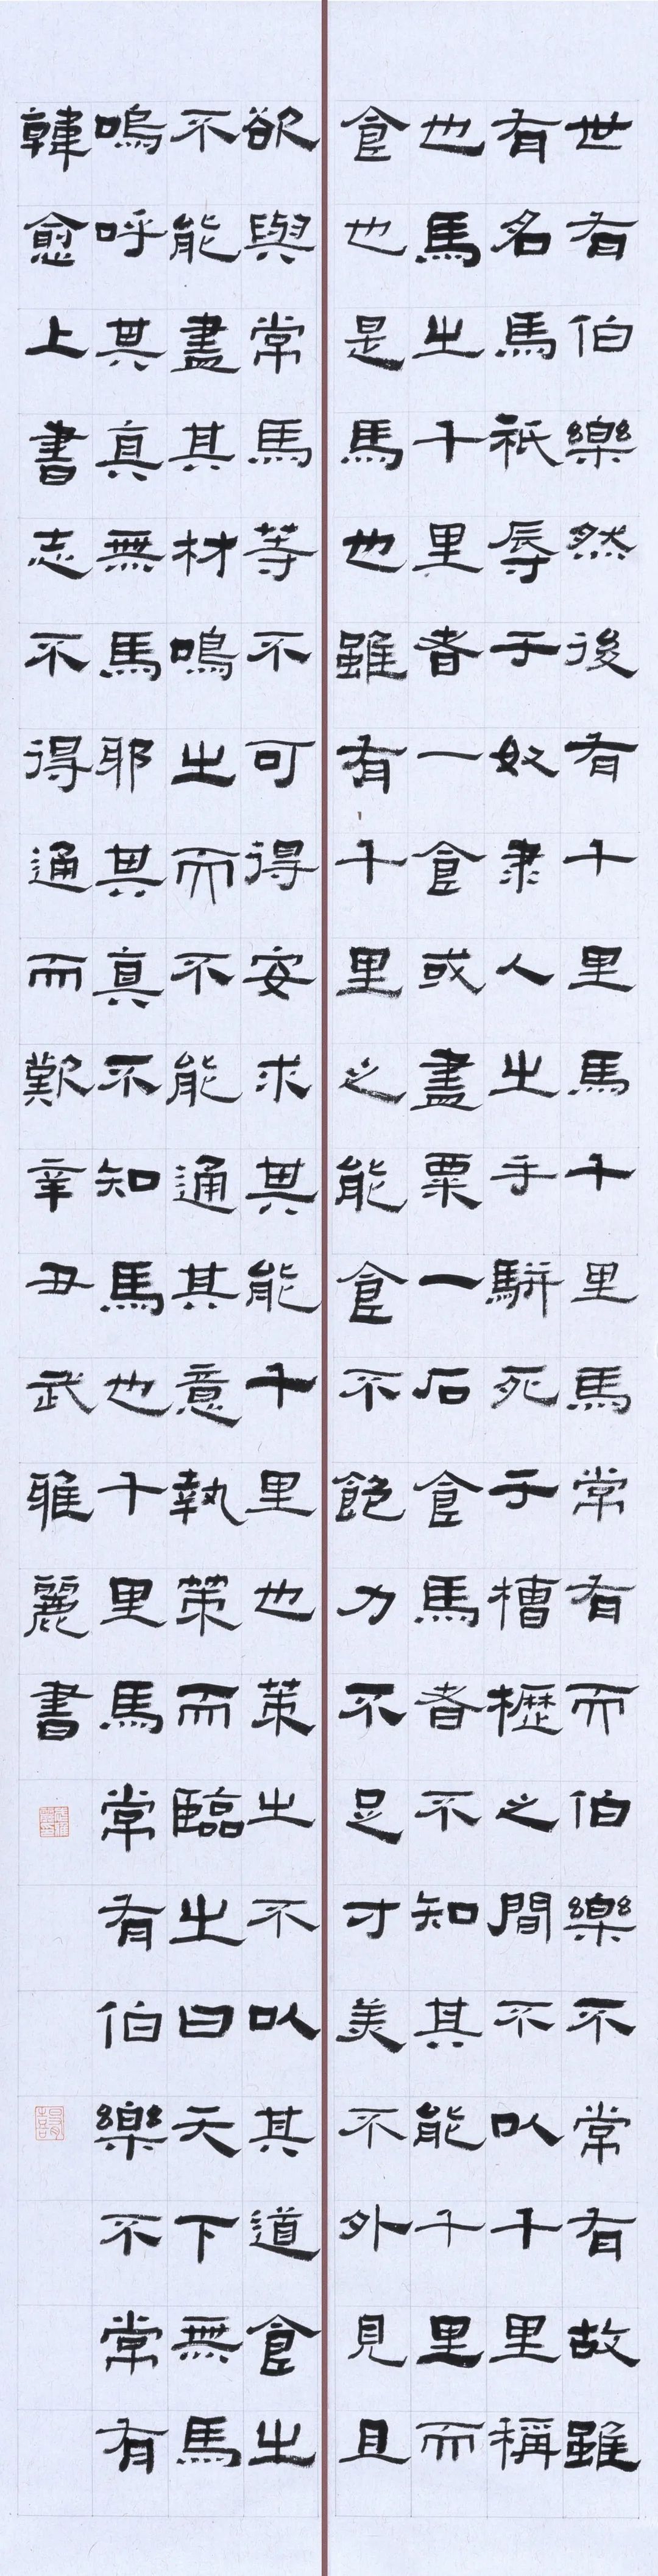 世有伯樂然後有千里馬千里馬常有而伯樂不常有故雖
有名馬祇辱于奴隶人之手駢死于槽櫪之間不以千里稱
也馬之千里者一食或盡粟一石食馬者不知其能千里而
食也是馬也雖有千里之能食不飽力不足才美不外見且
欲與常馬等不可得安求其能千里也策之不以其道食之
不能盡其材鳴之而不能通其意執策而臨之曰天下無馬
嗚呼其真無馬耶其真不知馬也千里馬常有伯樂不常有
韓愈上書志不得通而歎辛丑武雅麗書